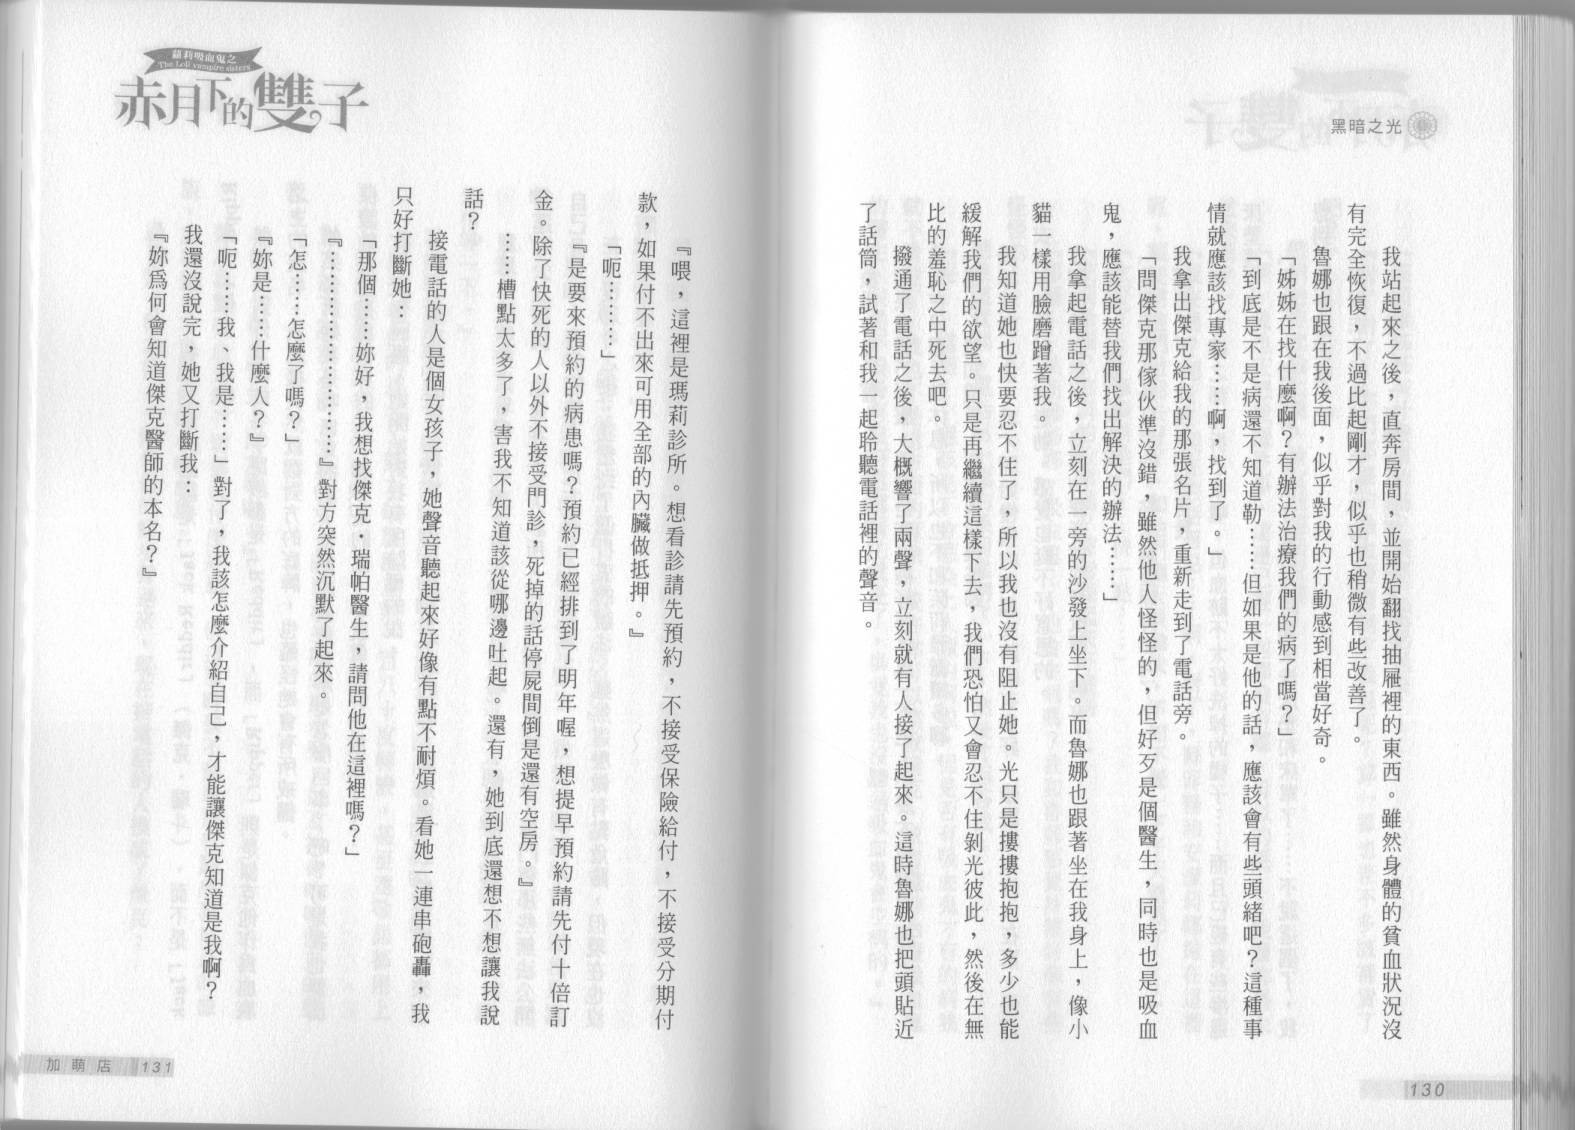 黑暗之光
我站起來之後，直奔房間，並開始翻找抽屜裡的東西。雖然身體的貧血狀況沒
有完全恢復，不過比起剛才，似乎也稍微有些改善了。
魯娜也跟在我後面，似乎對我的行動感到相當好奇。
「姊姊在找什麼啊？有辦法治療我們的病了嗎？」
「到底是不是病還不知道勒……但如果是他的話，應該會有些頭緒吧？這種事
情就應該找專家……啊，找到了。」
我拿出傑克給我的那張名片，重新走到了電話旁。
「問傑克那傢伙準沒錯，雖然他人怪怪的，但好歹是個醫生，同時也是吸血
鬼，應該能替我們找出解決的辦法……」
我拿起電話之後，立刻在一旁的沙發上坐下。而魯娜也跟著坐在我身上，像小
貓一樣用臉磨蹭著我。
我知道她也快要忍不住了，所以我也沒有阻止她。光只是摟摟抱抱，多少也能
緩解我們的欲望。只是再繼續這樣下去，我們恐怕又會忍不住剝光彼此，然後在無
比的羞恥之中死去吧。
撥通了電話之後，大概響了兩聲，立刻就有人接了起來。這時魯娜也把頭貼近
了話筒，試著和我一起聆聽電話裡的聲音。
130
蘿莉吸血鬼之
The Loli vampire sisters
赤月下的雙子
『喂，這裡是瑪莉診所。想看診請先預約，不接受保險給付，不接受分期付
款，如果付不出來可用全部的內臟做抵押。』
「呃………」
『是要來預約的病患嗎？預約已經排到了明年喔，想提早預約請先付十倍訂
金。除了快死的人以外不接受門診，死掉的話停屍間倒是還有空房。』
……槽點太多了，害我不知道該從哪邊吐起。還有，她到底還想不想讓我說
話？
接電話的人是個女孩子，她聲音聽起來好像有點不耐煩。看她一連串砲轟，我
只好打斷她：
「那個……妳好，我想找傑克．瑞帕醫生，請問他在這裡嗎？」
『…………………』對方突然沉默了起來。
「怎……怎麼了嗎？」
『妳是……什麼人？』
「呃……我、我是……」對了，我該怎麼介紹自己，才能讓傑克知道是我啊？
我還沒說完，她又打斷我：
『妳為何會知道傑克醫師的本名？』
加萌店 131